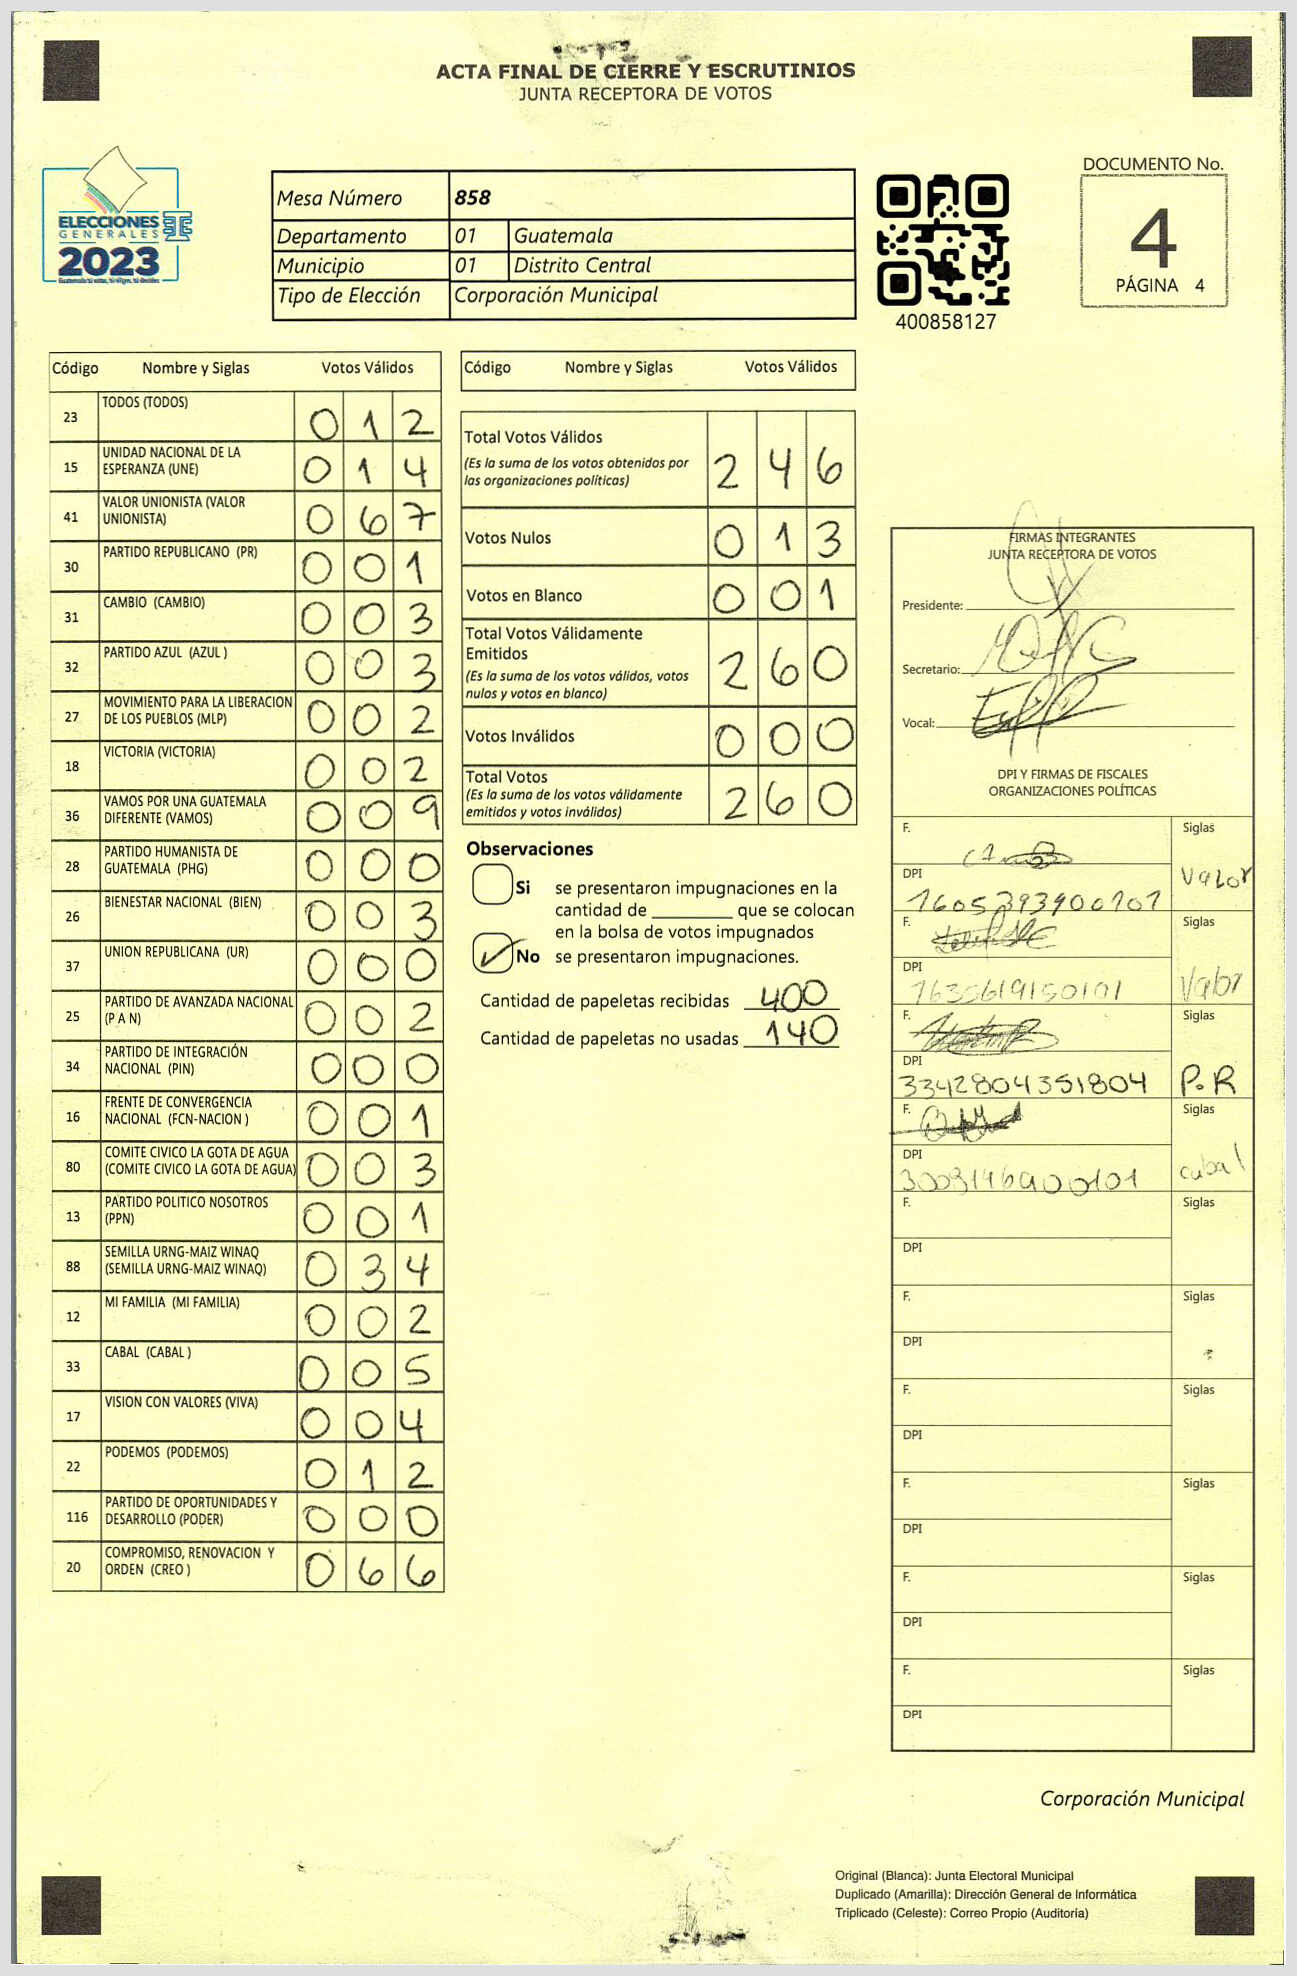 ACTA FINAL DE CIERRE Y ESCRUTINIOS
JUNTA RECEPTORA DE VOTOS
ELECCIONES
GENERALES
2023
Mesa Número 858
Departamento 01 Guatemala
Municipio 01 Distrito Central
Tipo de Elección Corporación Municipal
400858127
DOCUMENTO No.
4
PÁGINA 4
Código Nombre y Siglas Votos Válidos
23 TODOS (TODOS) 0 1 2
15 UNIDAD NACIONAL DE LA
ESPERANZA (UNE) 0 1 4
41 VALOR UNIONISTA (VALOR
UNIONISTA) 0 6 7
30 PARTIDO REPUBLICANO (PR) 0 0 1
31 CAMBIO (CAMBIO) 0 0 3
32 PARTIDO AZUL (AZUL ) 0 0 3
27 MOVIMIENTO PARA LA LIBERACION
DE LOS PUEBLOS (MLP) 0 0 2
18 VICTORIA (VICTORIA) 0 0 2
36 VAMOS POR UNA GUATEMALA
DIFERENTE (VAMOS) 0 0 9
28 PARTIDO HUMANISTA DE
GUATEMALA (PHG) 0 0 0
26 BIENESTAR NACIONAL (BIEN) 0 0 3
37 UNION REPUBLICANA (UR) 0 0 0
25 PARTIDO DE AVANZADA NACIONAL
(P A N) 0 0 2
34 PARTIDO DE INTEGRACIÓN
NACIONAL (PIN) 0 0 0
16 FRENTE DE CONVERGENCIA
NACIONAL (FCN-NACION ) 0 0 1
80 COMITE CIVICO LA GOTA DE AGUA
(COMITE CIVICO LA GOTA DE AGUA) 0 0 3
13 PARTIDO POLITICO NOSOTROS
(PPN) 0 0 1
88 SEMILLA URNG-MAIZ WINAQ
(SEMILLA URNG-MAIZ WINAQ) 0 3 4
12 MI FAMILIA (MI FAMILIA) 0 0 2
33 CABAL (CABAL ) 0 0 5
17 VISION CON VALORES (VIVA) 0 0 4
22 PODEMOS (PODEMOS) 0 1 2
116 PARTIDO DE OPORTUNIDADES Y
DESARROLLO (PODER) 0 0 0
20 COMPROMISO, RENOVACION Y
ORDEN (CREO ) 0 6 6
Código Nombre y Siglas Votos Válidos
Total Votos Válidos 2 4 6
(Es la suma de los votos obtenidos por
las organizaciones políticas)
Votos Nulos 0 1 3
Votos en Blanco 0 0 1
Total Votos Válidamente
Emitidos 2 6 0
(Es la suma de los votos válidos, votos
nulos y votos en blanco)
Votos Inválidos 0 0 0
Total Votos 2 6 0
(Es la suma de los votos válidamente
emitidos y votos inválidos)
Observaciones
Si se presentaron impugnaciones en la
cantidad de ________ que se colocan
en la bolsa de votos impugnados
No se presentaron impugnaciones.
Cantidad de papeletas recibidas 400
Cantidad de papeletas no usadas 140
FIRMAS INTEGRANTES
JUNTA RECEPTORA DE VOTOS
Presidente:
Secretario:
Vocal:
DPI Y FIRMAS DE FISCALES
ORGANIZACIONES POLÍTICAS
F. Siglas
Valor
DPI
1605393900101
F. Siglas
DPI Valor
1635619150101
F. Siglas
DPI
3342804351804 P.R
F. Siglas
DPI cabal
F. Siglas
DPI
F. Siglas
DPI
F. Siglas
DPI
F. Siglas
DPI
F. Siglas
DPI
F. Siglas
DPI
Corporación Municipal
Original (Blanca): Junta Electoral Municipal
Duplicado (Amarilla): Dirección General de Informática
Triplicado (Celeste): Correo Propio (Auditoría)